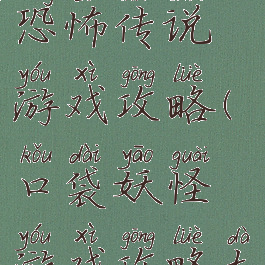 恐怖传说
yóu xì gōng lüè
游戏攻略(
kǒu dài yāo guài
口袋妖怪
yóu xì gōng lüè dà
游戏攻略大